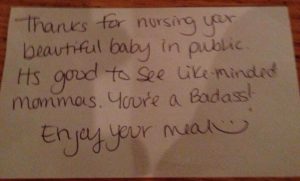 Thanks for nursing your
beautiful baby in public.
Its good to see like-minded
mommas. You're a Badass!
Enjoy your meal